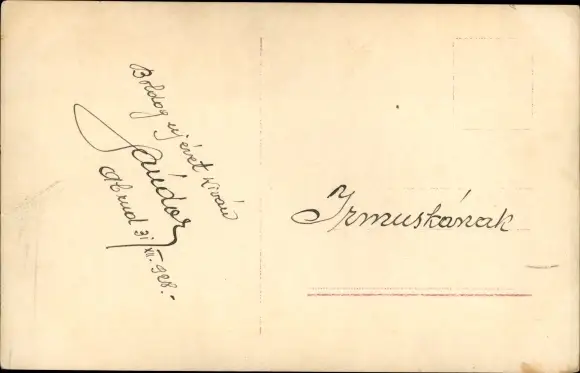 Boldog uj évet kiván
Sándor
Abrud 31/XII.-928.-
Irmuskának